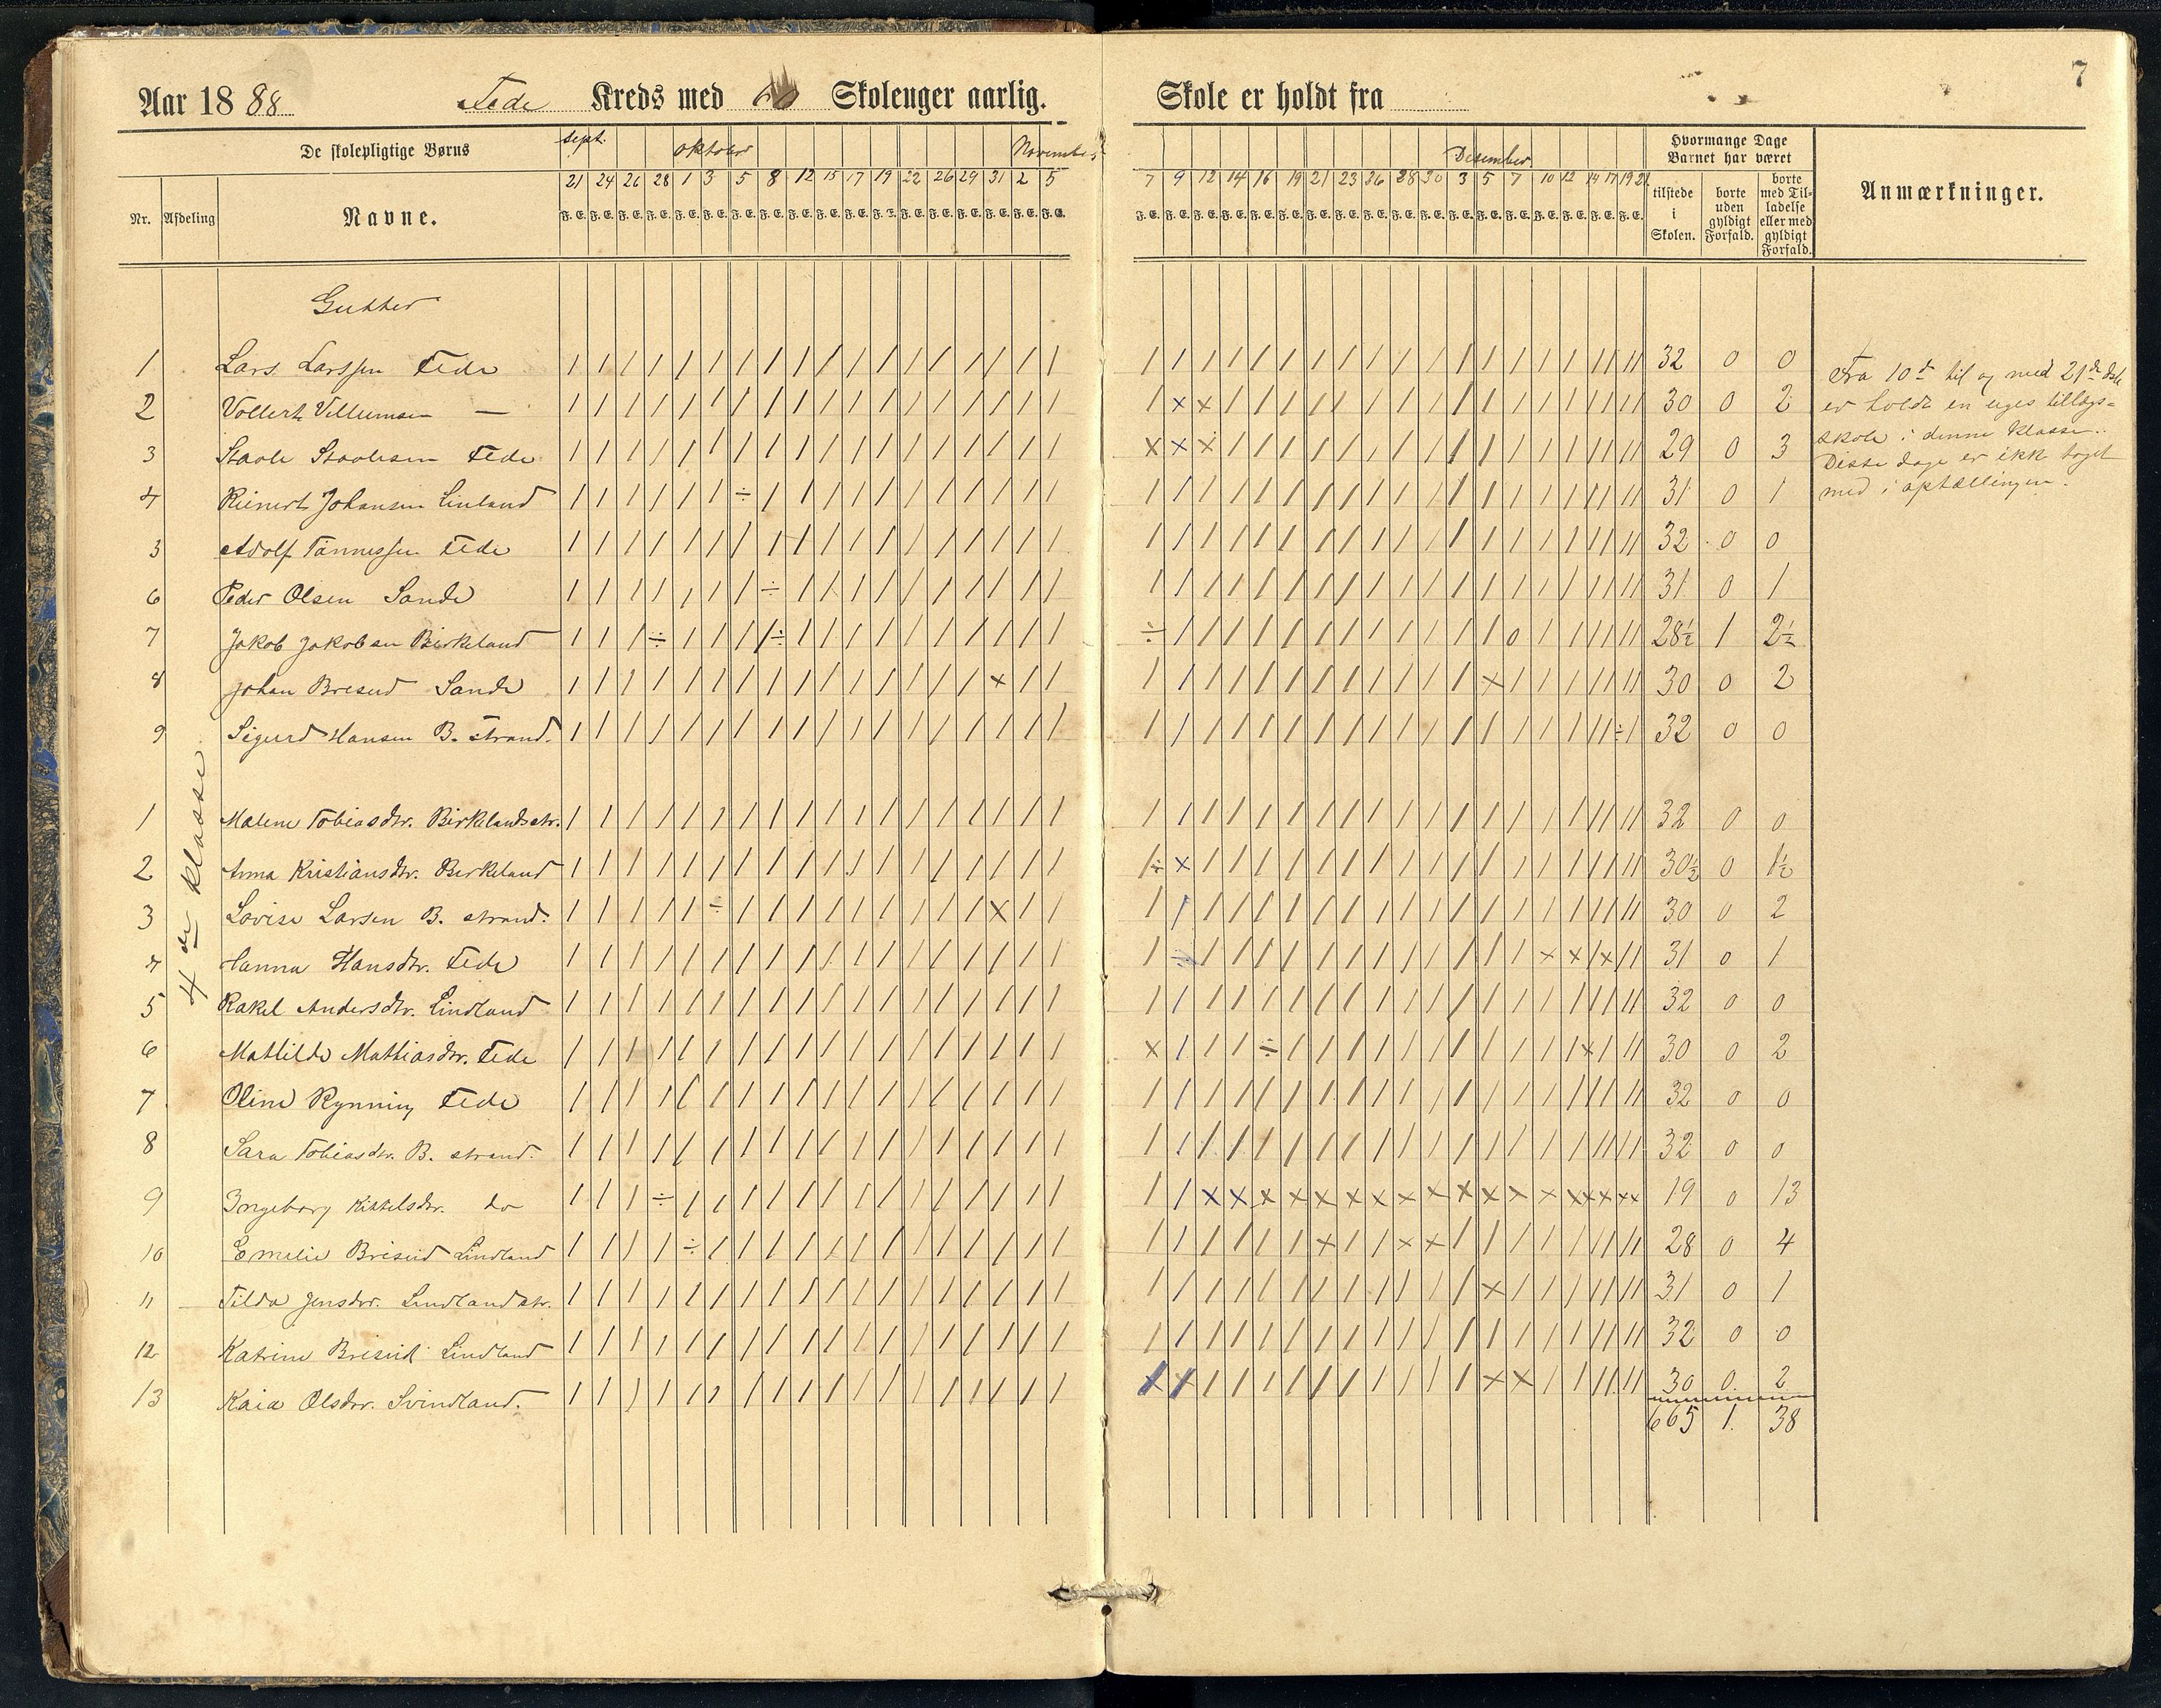 7
Aar 1888 Fede Kreds med Skoleuger aarlig. Skole er holdt fra
De skolepligtige Børns
Nr. Afdeling Navne.
Sept. oktober November Desember
21 24 26 28 1 3 5 8 12 15 17 19 22 26 29 31 2 5 7 9 12 14 16 19 21 23 26 28 30 3 5 7 10 12 14 17 19 21
F. E. F. E. F. E. F. E. F. E. F. E. F. E. F. E. F. E. F. E. F. E. F. E. F. E. F. E. F. E. F. E. F. E. F. E. F. E. F. E. F. E. F. E. F. E. F. E. F. E. F. E. F. E. F. E. F. E. F. E. F. E. F. E. F. E. F. E. F. E. F. E. F. E. F. E.
Hvormange Dage
Barnet har været
tilstede i Skolen.
borte uden gyldigt Forfald.
borte med Tilladelse eller med gyldigt Forfald.
Anmærkninger.
Gutter
4de klasse
1 Lars Larssen Fede 32 0 0
2 Vollert Villumsen — 30 0 2
3 Staale Staalesen Fede 29 0 3
4 Reinert Johansen Linland 31 0 1
3 Adolf Tønnessen Fede 32 0 0
6 Peder Olsen Sande 31 0 1
7 Jakob Jakobsen Birkeland 28½ 1 2½
8 Johan Breseid Sande 30 0 2
9 Sigurd Hansen B. strand. 32 0 0
1 Malene Tobiasdtr. Birkelandsstr. 32 0 0
2 Anna Kristiansdtr. Birkeland 30½ 0 1½
3 Lovise Larsen B. strand. 30 0 2
4 Hanna Hansdtr. Fede 31 0 1
5 Rakel Andersdtr. Lindland 32 0 0
6 Mathilde Mathiasdtr. Fede 30 0 2
7 Oline Rynning Fede 32 0 0
8 Sara Tobiasdtr. B. strand. 32 0 0
9 Ingeborg Kittelsdtr. do 19 0 13
10 Emelie Briseid Lindland 28 0 4
11 Tilda Jensdtr. Lindlandstr. 31 0 1
12 Katrine Briseid Lindland 32 0 0
13 Kaia Olsdtr. Svindland. 30 0 2
665 1. 38
Fra 10de til og med 21de dsbr
er holdt en uges tillægs-
skole i denne klasse.
Disse dage er ikk taget
med i optællingen.